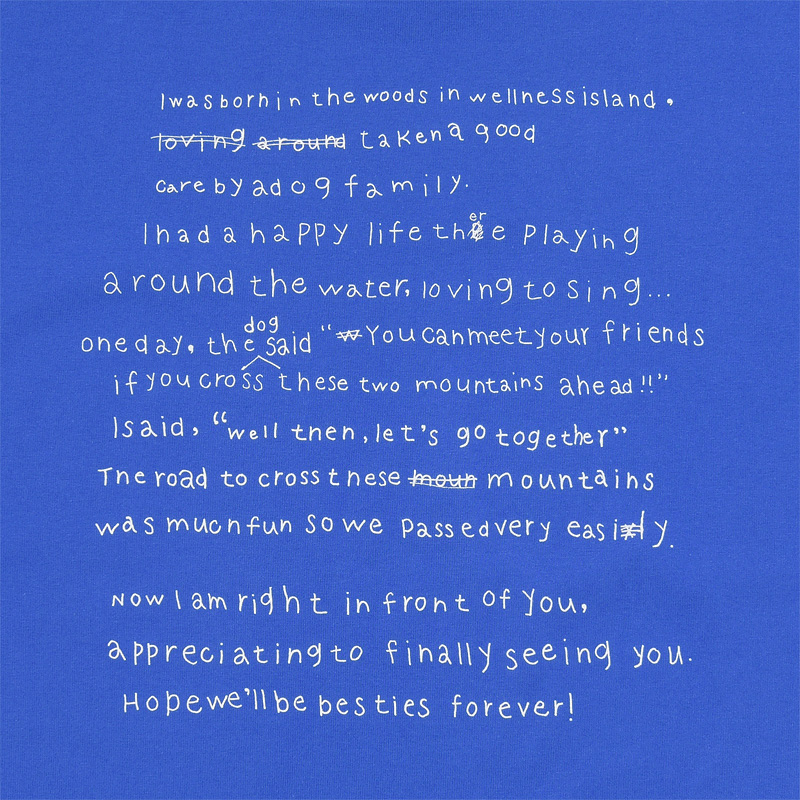 I was born in the woods in wellness island,
loving around taken a good
care by a dog family.
I had a happy life there playing
around the water, loving to sing...
one day, the dog said "w You can meet your friends
if you cross these two mountains ahead!!"
I said, "well then, let's go together"
The road to cross these moun mountains
was much fun so we passed very easily.
Now I am right in front of you,
appreciating to finally seeing you.
Hope we'll be besties forever!